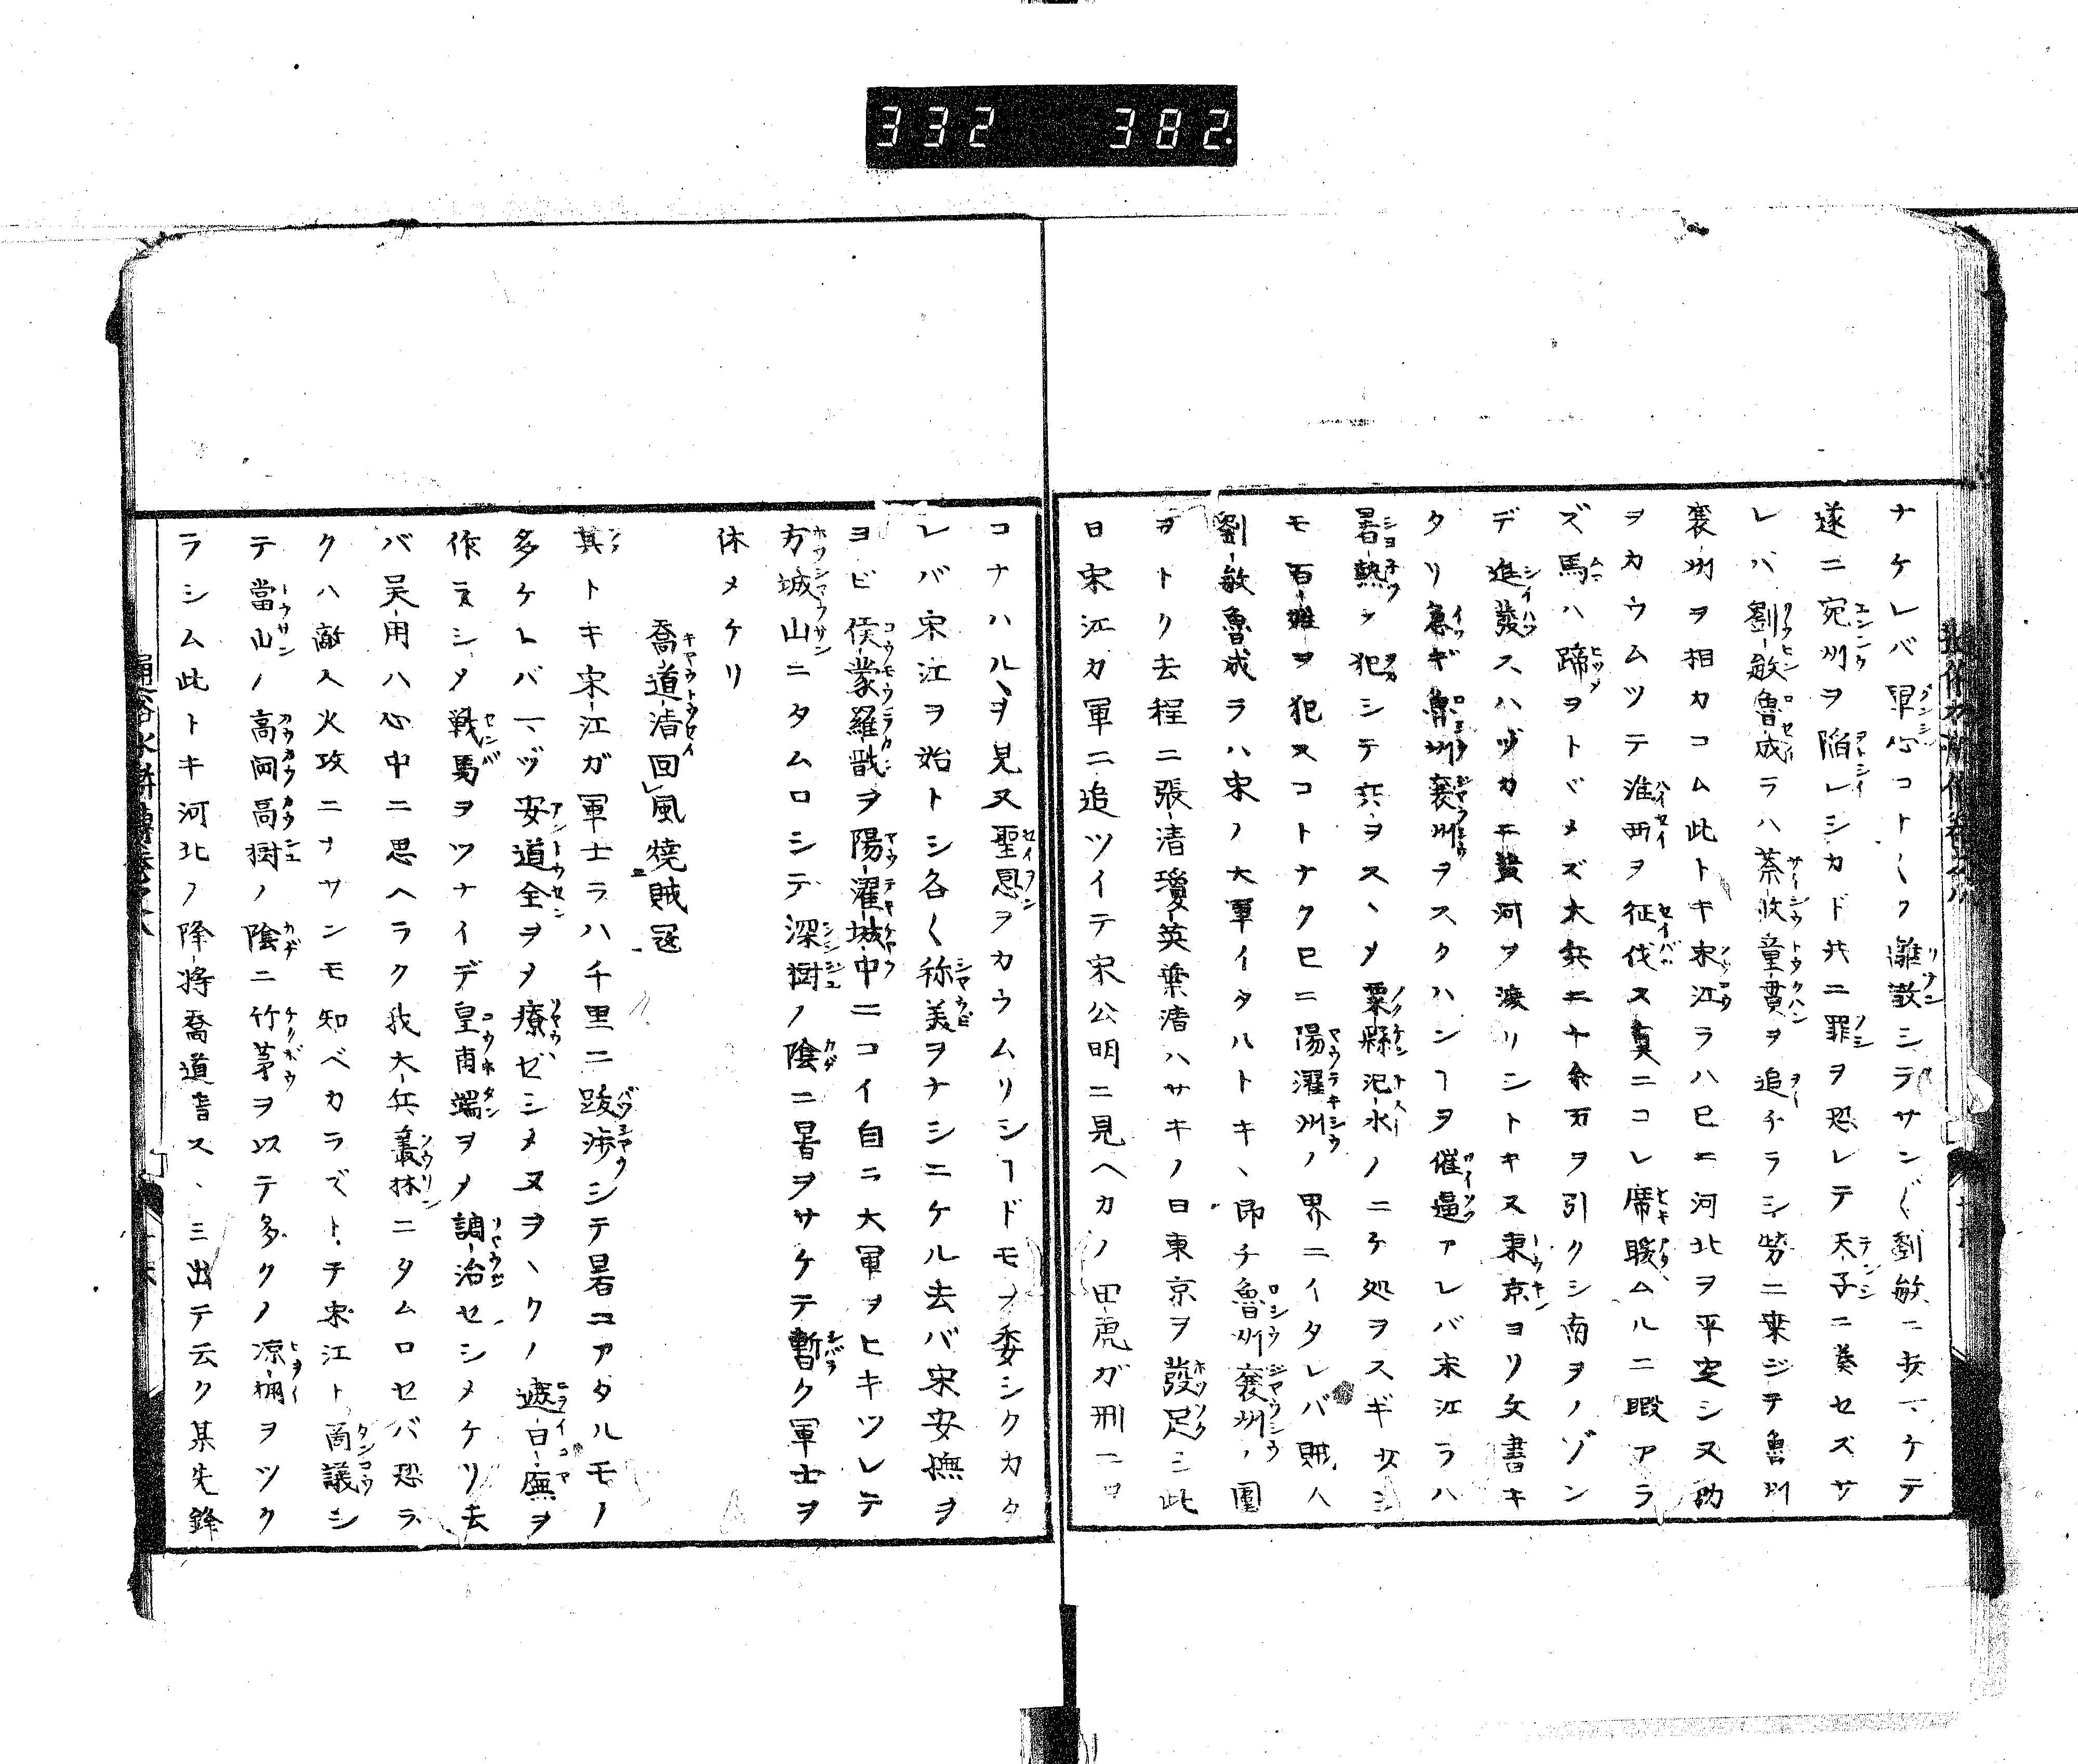 332 382.
ナケレバ軍心コト〱ク離散シテサン〲劉敏ニ攻マケテ
遂ニ宛州ヲ陥レシカド共ニ罪ヲ恐レテ天子ニ奏セズサ
レバ劉敏魯成ラハ蔡攸童貫ヲ追チラシ勞ニ乗ジテ魯州
襄州ヲ相カコム此トキ宋江ラハ已ニ河北ヲ平定シ又勅
ヲカウムツテ淮西ヲ征伐ス真ニコレ席暖ムルニ暇アラ
ズ馬ハ蹄ヲトドメズ大兵二十余万ヲ引クシ南ヲノゾン
デ進發スハヅカニ黄河ヲ渡リントキ又東京ヨリ文書キ
タリ急ギ魯州襄州ヲスクハンヿヲ催逼アレバ宋江ラハ
暑熱ヲ犯シテ兵ヲスヽメ粟縣汜水ノニケ処ヲスギ女シ
モ百姓ヲ犯スコトナク已ニ陽濯州ノ界ニイタレバ賊人
劉敏魯成ラハ宋ノ大軍イタルトキヽ即チ魯州襄州ノ圍
ヲトク去程ニ張清瓊英葉清ハサキノ日東京ヲ發足シ此
日宋江カ軍ニ追ツイテ宋公明ニ見ヘカノ田虎ガ刑ニヲ
コナハルヽヲ見又聖恩ヲカウムリシヿドモヲ委シクカタ
レバ宋江ヲ始トシ各〱称美ヲナシニケル去バ宋安撫ヲ
ヨビ侯蒙羅戩ヲ陽濯城中ニコイ自ラ大軍ヲヒキツレテ
方城山ニタムロシテ深樹ノ陰ニ暑ヲサケテ暫ク軍士ヲ
休メケリ
喬道清回風燒賊冦
其トキ宋江ガ軍士ラハ千里ニ跋渉シテ暑ニアタルモノ
多ケレバマヅ安道全ヲヲ療ゼシメヌヲヽクノ遮白廡ヲ
作ラシメ戦馬ヲツナイデ皇甫端ヲメ調治セシメケリ去
バ吴用ハ心中ニ思ヘラク我大兵叢林ニタムロセバ恐ラ
クハ敵人火攻ニナサンモ知ベカラズトヽチ宋江ト商議シ
テ當山ノ高岡高樹ノ陰ニ竹茅ヲ以テ多クノ凉棚ヲツク
ラシム此トキ河北ノ降將喬道清スヽミ出テ云ク某先鋒